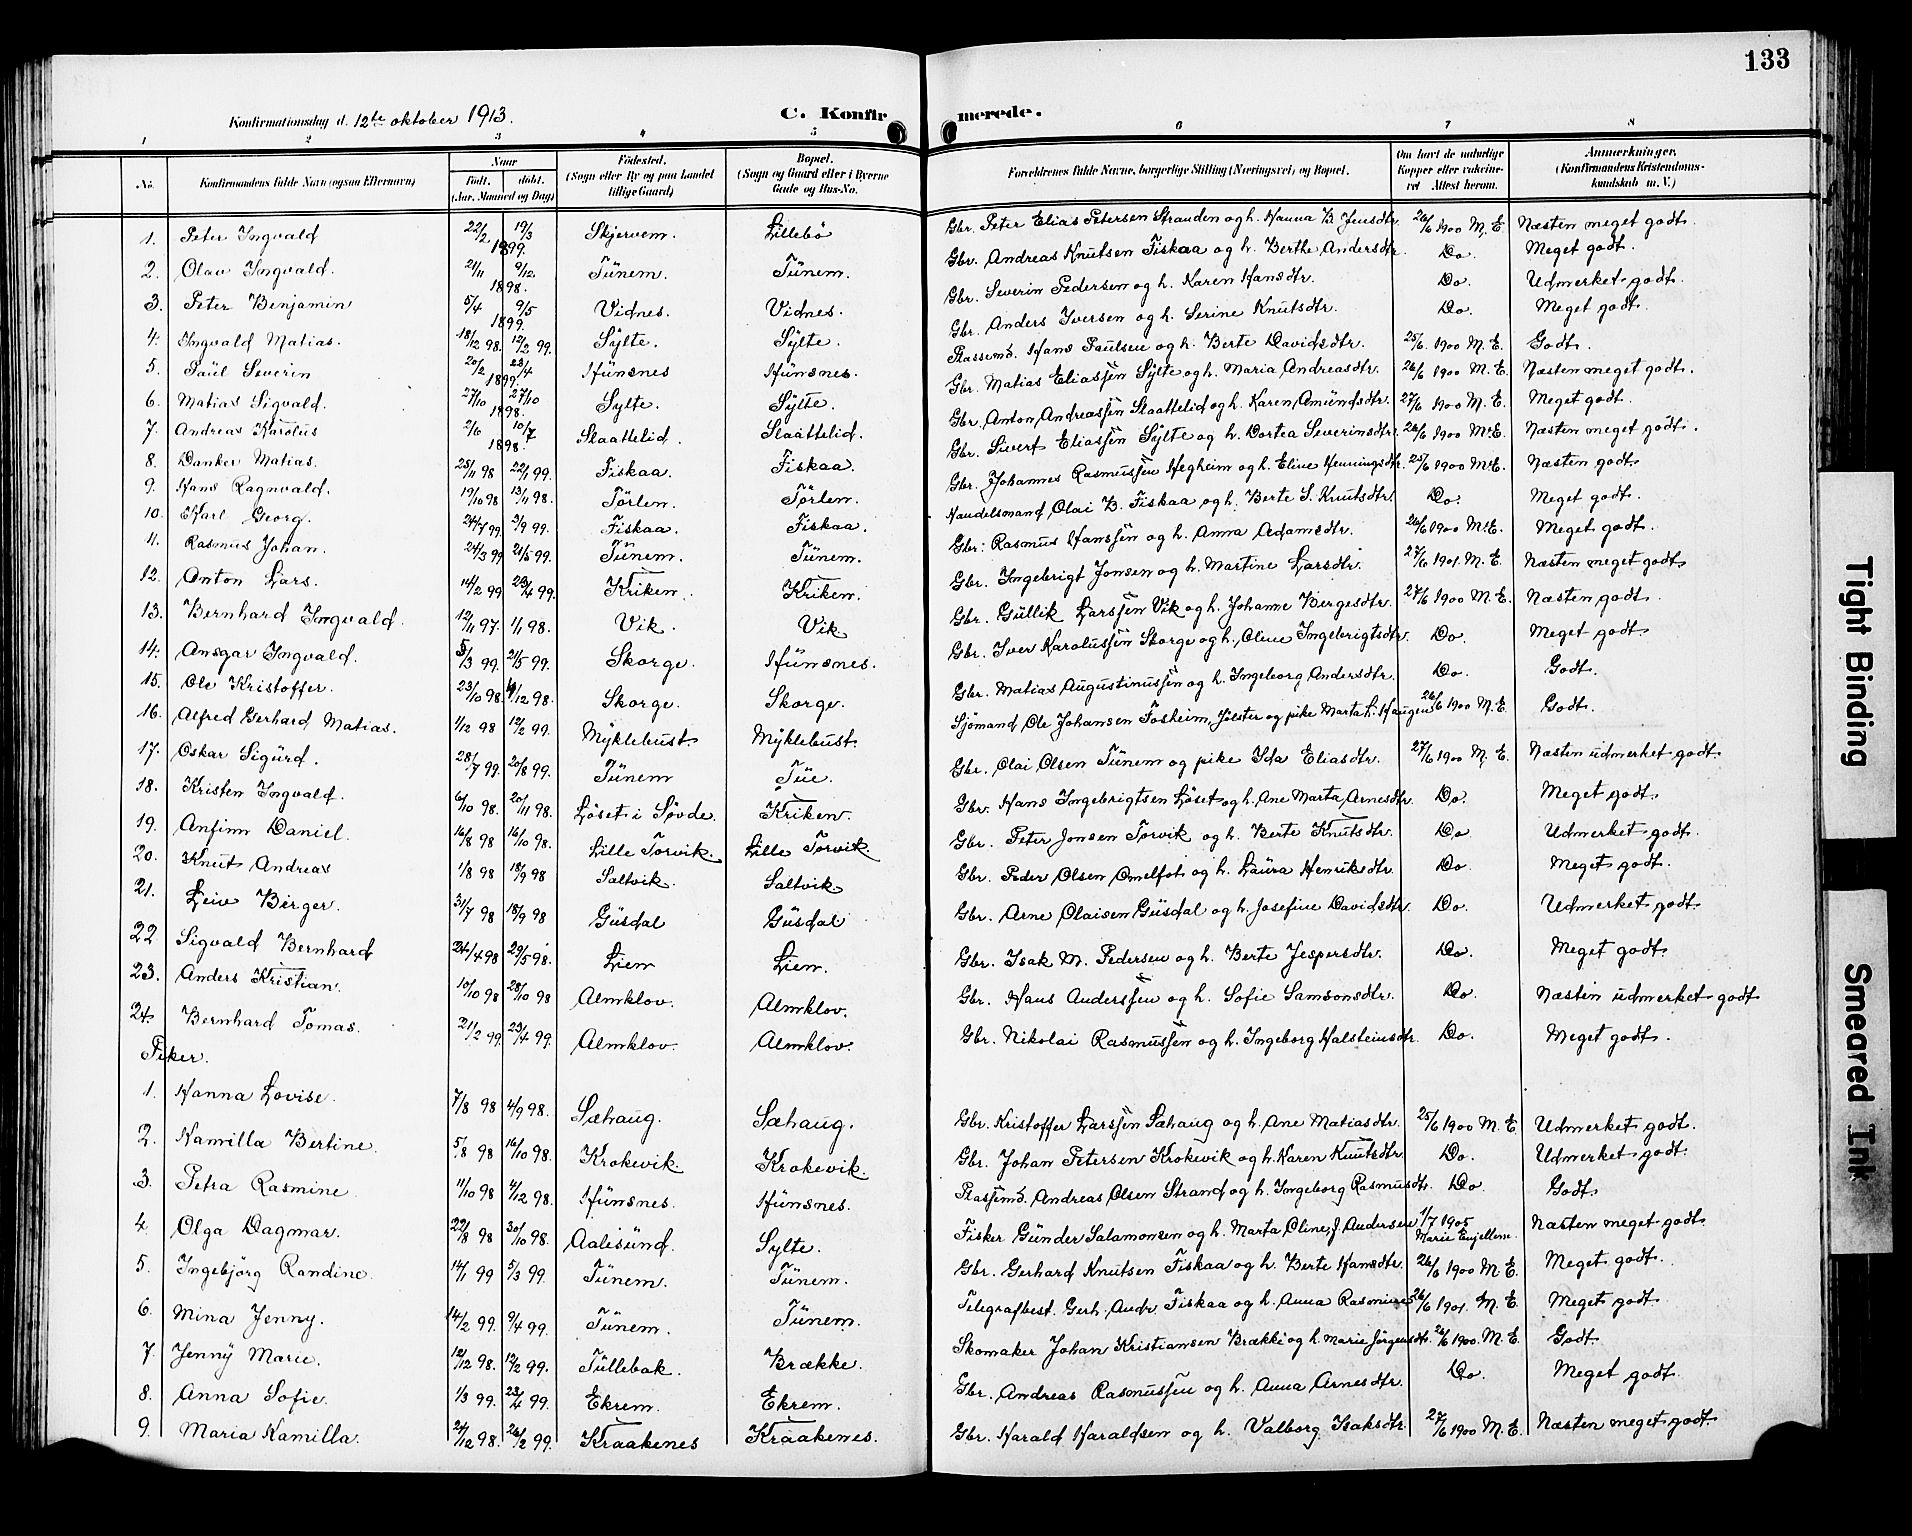 133
Konfirmationsdag d. 12te oktober 1913. C. Konfirmerede.
1 2 3 4 5 6 7 8
No. Konfirmandens fulde Navn (ogsaa Efternavn) Naar Født. døbt. (Aar, Maaned og Dag) Fødested. (Sogn eller By og paa Landet tillige Gaard) Bopæl. (Sogn og Gaard eller i Byerne Gade og Hus-No. Forældrenes fulde Navne, borgerlige Stilling (Næringsvei) og Bopæl. Om havt de naturlige Kopper eller vaksineret Attest herom. Anmerkninger. (Konfirmandens Kristendomskundskab m. V.)
1. Peter Ingvald 22/2 19/3 1899. Skjervem. Lillebö Gbr. Peter Elias Petersen Stranden og h. Hanna B. Jensdtr. 26/6 1900 M. E. Næsten meget godt.
2. Olav Ingvald. 21/11 9/12. 1898. Tünem. Tünem. Gbr. Andreas Knutsen Fiskaa og h. Berthe Andersdtr. Do. Meget godt.
3. Peter Benjamin 5/4 9/5 1899. Vidnes. Vidnes. Gbr. Severin Pedersen og h. Karen Hansdtr. Do. Udmerket godt.
4. Ingvald Matias. 18/12 98. 12/2 99. Sylte. Sylte. Gbr. Anders Iversen og h. Serine Knutsdtr. Do. Meget godt.
5. Paül Severin 20/2 23/4 1899. Hünsnes Hünsnes. Plassemd. Hans Paulsen og h. Berte Davidsdtr. 25/6. 1900 M. E. Godt.
6. Matias Sigvald. 27/10 27/10 1898. Sylte. Sylte. Gbr. Matias Eliassen Sylte og h. Maria Andreasdtr. 26/6 1900 M. E. Næsten meget godt.
7. Andreas Karolus 2/6 10/7 1898. Slaattelid. Slaattelid. Gbr. Anton Andreassen Slaattelid og h. Karen Amündsdtr. 27/6 1900 M. E. Meget godt.
8. Danker Matias. 25/11 98 22/1 99. Fiskaa. Fiskaa. Gbr. Sivert Eliassen Sylte og h. Dortea Severinsdtr. 26/6 1900 M. E. Næsten meget godt.
9. Hans Ragnvald. 19/10 98 13/11 98. Törlem. Törlem. Gbr. Johannes Rasmussen Hegheim og h. Eline Henningsdtr. 25/6 1900 M. E. Næsten godt.
10. Karl Georg. 24/7 99. 3/9 99. Fiskaa. Fiskaa. Handelsmand Olai B. Fiskaa og h. Berte S. Knutsdtr. Do. Meget godt.
11. Rasmus Johan. 24/3 99 21/5 99. Tünem. Tünem. Gbr. Rasmus Hanssen og h. Anna Adamsdtr. 26/6 1900 M. E. Meget godt.
12. Anton Lars. 14/2 99 23/4 99. Kriken. Kriken. Gbr. Ingebrigt Jonsen og h. Martine Larsdtr. 27/6 1901. M. E. Næsten meget godt
13. Bernhard Ingvald. 12/11 97. 1/1 98. Vik. Vik Gbr. Güllik Larssen Vik og h. Johanne Bergesdtr. 27/6 1900 M. E. Næsten godt.
14. Ansgar Ingvald. 5/3 99. 21/5 99. Skorge. Hünsnes. Gbr. Iver Karolussen Skorge og h. Oline Ingebrigtsdtr. Do. Meget godt
15. Ole Kristoffer. 23/10 98. 4/12 98. Skorge. Skorge. Gbr. Matias Augustinussen og h. Ingeborg Andersdtr. Do. Godt.
16. Alfred Gerhard Matias. 1/12 98 12/2 99. Myklebust. Myklebust. Sjömand Ole Johansen Fosheim, Jölster og pike Marta L. Haugen 26/6 1900 M. E. Godt.
17. Oskar Sigürd. 28/7 99. 20/8 99. Tünem Tüe. Gbr. Olai Olsen Tünem og pike Ida Eliasdtr. 27/6 1900 M. E. Næsten udmerket godt
18. Kristen Ingvald. 6/10 98. 20/11 98. Löset i Sövde. Kriken. Gbr. Hans Ingebrigtsen Löset og h. Ane Marta Arnesdtr. Do. Meget godt.
19. Anfinn Daniel. 16/8 98 16/10 98. Lille Torvik. Lille Torvik. Gbr. Peter Jonsen Torvik og h. Berte Knutsdtr. Do Udmerket godt.
20. Knut Andreas 1/8 98 18/9 98 Saltvik. Saltvik Gbr. Peder Olsen Omelfot og h. Laüra Henriksdtr. Do Meget godt.
21. Leiv Birger. 31/7 98 18/9 98 Güsdal Güsdal Gbr. Arne Olaisen Güsdal og h. Josefine Davidsdtr. Do. Udmerket godt.
22 Sigvald Bernhard 24/4 98 29/5 98. Liem Liem. Gbr. Isak M. Pedersen og h. Berte Jespersdtr. Do. Meget godt.
23. Anders Kristian. 10/10 98 28/10 98 Almklov. Almklov. Gbr. Hans Anderssen og h. Sofie Samsonsdtr. Do. Næsten udmerket godt
24. Bernhard Tomas. 21/2 99. 23/4 99. Almklov. Almklov. Gbr. Nikolai Rasmussen og h. Ingeborg Halsteinsdtr. Do. Meget godt.
Piker.
1. Hanna Lovise. 7/8 98 4/9 98. Sæhaug. Sæhaug. Gbr. Kristoffer Larssen Sæhaug og h. Ane Matiasdtr. 25/6 1900 M. E. Udmerket godt.
2. Kamilla Bertine. 5/8 98 16/10 98. Krokevik Krokevik. Gbr. Johan Petersen Krokevik og h. Karen Knutsdtr. Do. Udmerket godt.
3. Petra Rasmine. 11/10 98 4/12 98. Hünsnes. Hünsnes. Plassemd. Andreas Olsen Strand og h. Ingeborg Rasmusdtr. Do. Godt.
4. Olga Dagmar. 22/8 98 30/10 98. Aalisünd. Sylte. Fisker Günder Salamonsen og h. Marta Oline J. Andersen 1/7 1905 Marie Enjellem. Næsten meget godt.
5. Ingebjörg Randine. 14/1 99 5/3 99. Tünem. Tünem. Gbr. Gerhard Knutsen Fiskaa og h. Berte Hansdtr. 26/6 1900 M. E. Meget godt.
6. Mina Jenny. 14/2 99. 9/4 99. Tünem. Tünem. Telegrafbest. Gerh. Andr. Fiskaa og h. Anna Rasmines 26/6 1901. M. E. Meget godt.
7. Jenny Marie. 12/12 98. 12/2 99. Tüllebak. Brække. Skomaker Johan Kristiansen Brække og h. Marie Jörgensdtr. 26/6 1900. M. E. Godt.
8. Anna Sofie. 1/3 99. 23/4 99. Ekrem. Ekrem. Gbr. Andreas Rasmussen og h. Anna Arnesdtr. Do. Meget godt.
9. Maria Kamilla. 24/12 98. 26/2 99. Kraakenes Kraakenes. Gbr. Harald Haraldsen og h. Valborg Isaksdtr. 27/6 1900 M. E. Næsten meget godt
Tight Binding
Smeared Ink